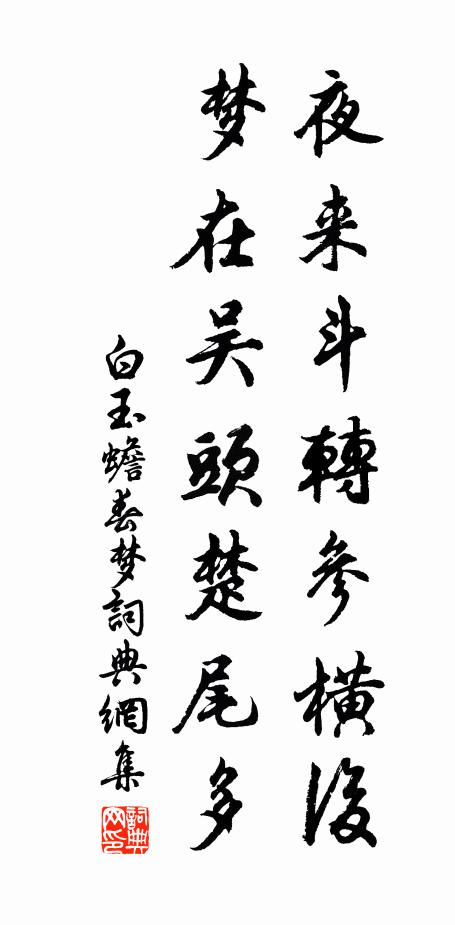 夜来斗轉參横後
梦在吴頭楚尾多
白玉蟾春梦詞典網集
詞典网印